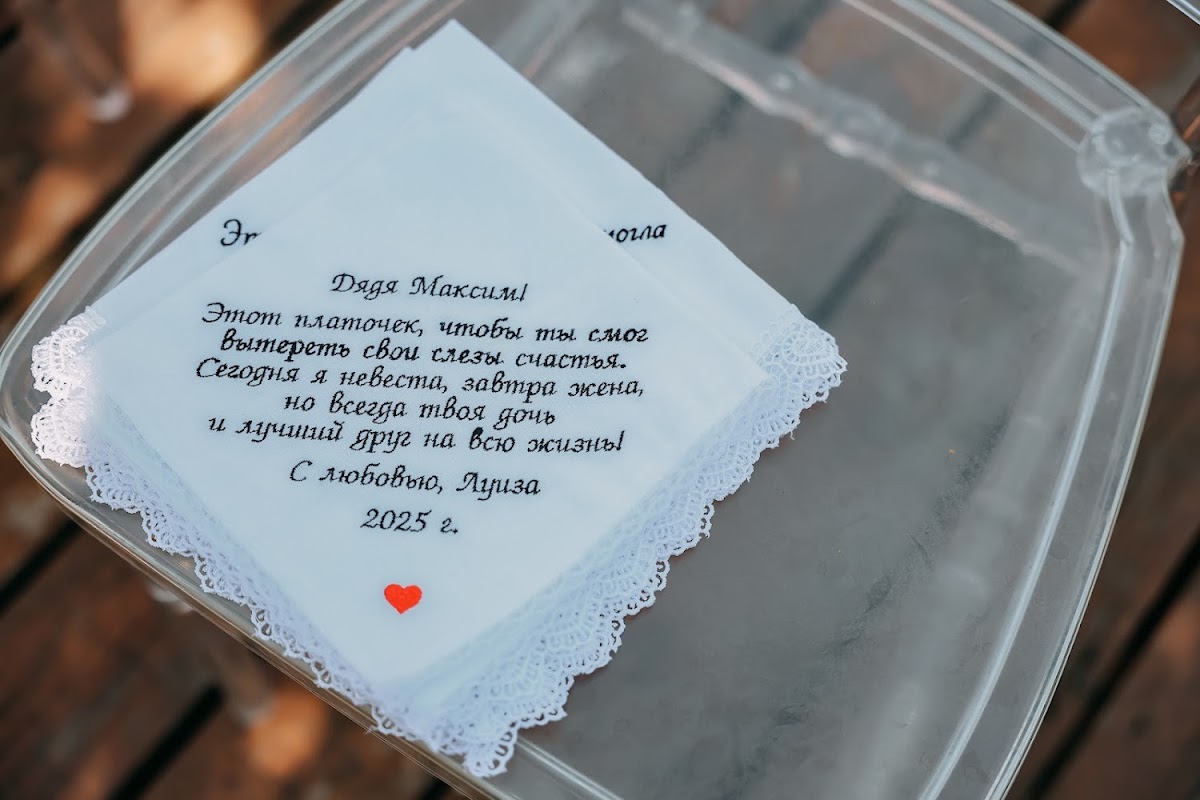 Дядя Максим!
Этот платочек, чтобы ты смог
вытереть свои слезы счастья.
Сегодня я невеста, завтра жена,
но всегда твоя дочь
и лучший друг на всю жизнь!
С любовью, Луиза
2025 г.